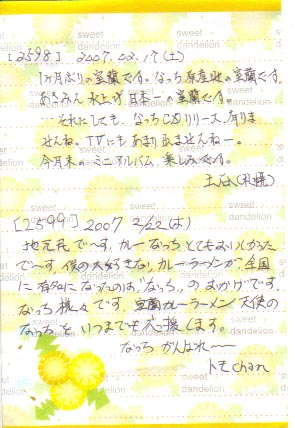 [2598] 2007.02.17(土)
1ヶ月ぶりの室蘭です。なっち原産地の室蘭です。
水上げ日本一の室蘭です。
…それにしても、なっちCDリリース、有りま
せんねー。TVにもあまり出ませんねー。
今月末のミニアルバム、楽しみです。
土谷(札幌)
[2599] 2007 2/22(木)
地元民で〜す。カレーなっちとてもおいしかった
で〜す。僕の大好きなカレーラーメンが全国
に有名になったのは"なっち"のおかげです。
なっち様々です。室蘭カレーラーメン天使の
なっちを いつまでも応援します。
なっち がんばれ〜
トモchan
sweet
dandelion